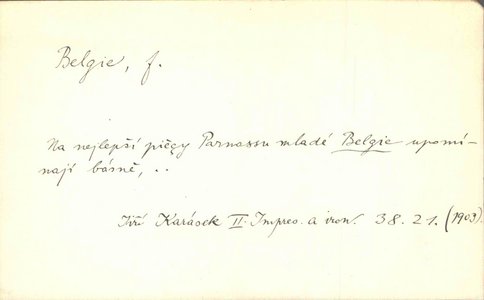 Belgie, f.
Na nejlepší pięçy Parnassu mladé Belgie upomí-
nají básně, ..
Jiří Karásek II. Impres. a iron. 38. 21. (1903).